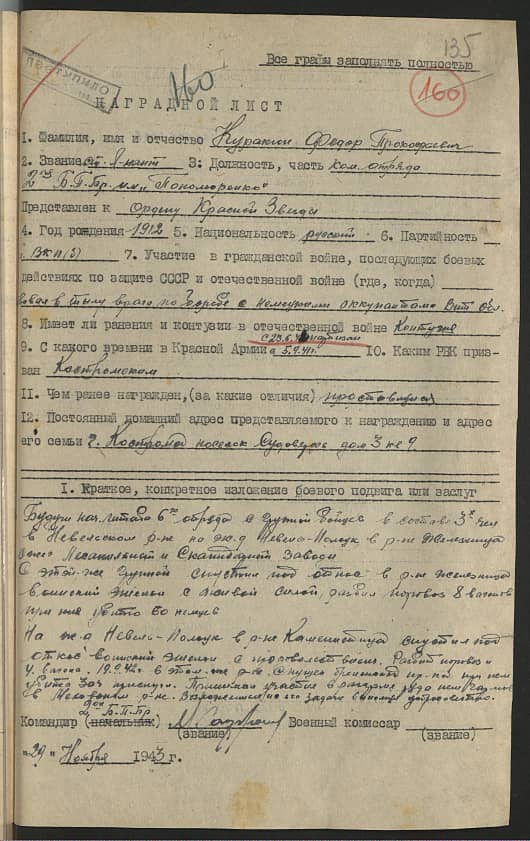 135
Все графы заполнять полностью
ПОСТУПИЛО
160
160
НАГРАДНОЙ ЛИСТ
1. Фамилия, имя и отчество Куракин Федор Прокофьевич
2. Звание ст. л-нант 3: Должность, часть ком. отряда
2ой Б.П.Бр. им. "Пономаренко"
Представлен к Ордену Красной Звезды
4. Год рождения 1912 5. Национальность русский 6. Партийность
ВКП(б) 7. Участие в гражданской войне, последующих боевых
действиях по защите СССР и отечественной войне (где, когда)
в тылу врага по борьбе с немецкими оккупантами Вит. обл.
8. Имеет ли ранения и контузии в отечественной войне Контужен
9. С какого времени в Красной Армии с 5.9.41г. 10. Каким РВК приз-
ван Костромским
11. Чем ранее награжден, (за какие отличия)
12. Постоянный домашний адрес представляемого к награждению и адрес
его семьи г. Кострома поселок дом 3 кв 9.
I. Краткое, конкретное изложение боевого подвига или заслуг
Будучи нач. штаба 6го отряда с группой бойцов в составе 3х чел
в Невельском р-не на ж.д Невель-Полоцк в р-не Железница
Лесопильный и Скипидарный Заводы
С этой-же группой спустил под откос в р-не Железница
воинский эшелон с живой силой, разбил паровоз 8 вагонов
при чем убито 60 немцев
На ж-д Невель-Полоцк в р-не Каменистица спустил под
откос воинский эшелон с продовольствием. Разбит паровоз и
4 вагона. 19.9.42г. в этом-же р-не
Принимал участие в разгроме ряда нем. гарниз
в р-не.
2ой Б-П-Бр
Командир (начальник) Военный комиссар
(звание) (звание)
"29" Ноября 1943 г.